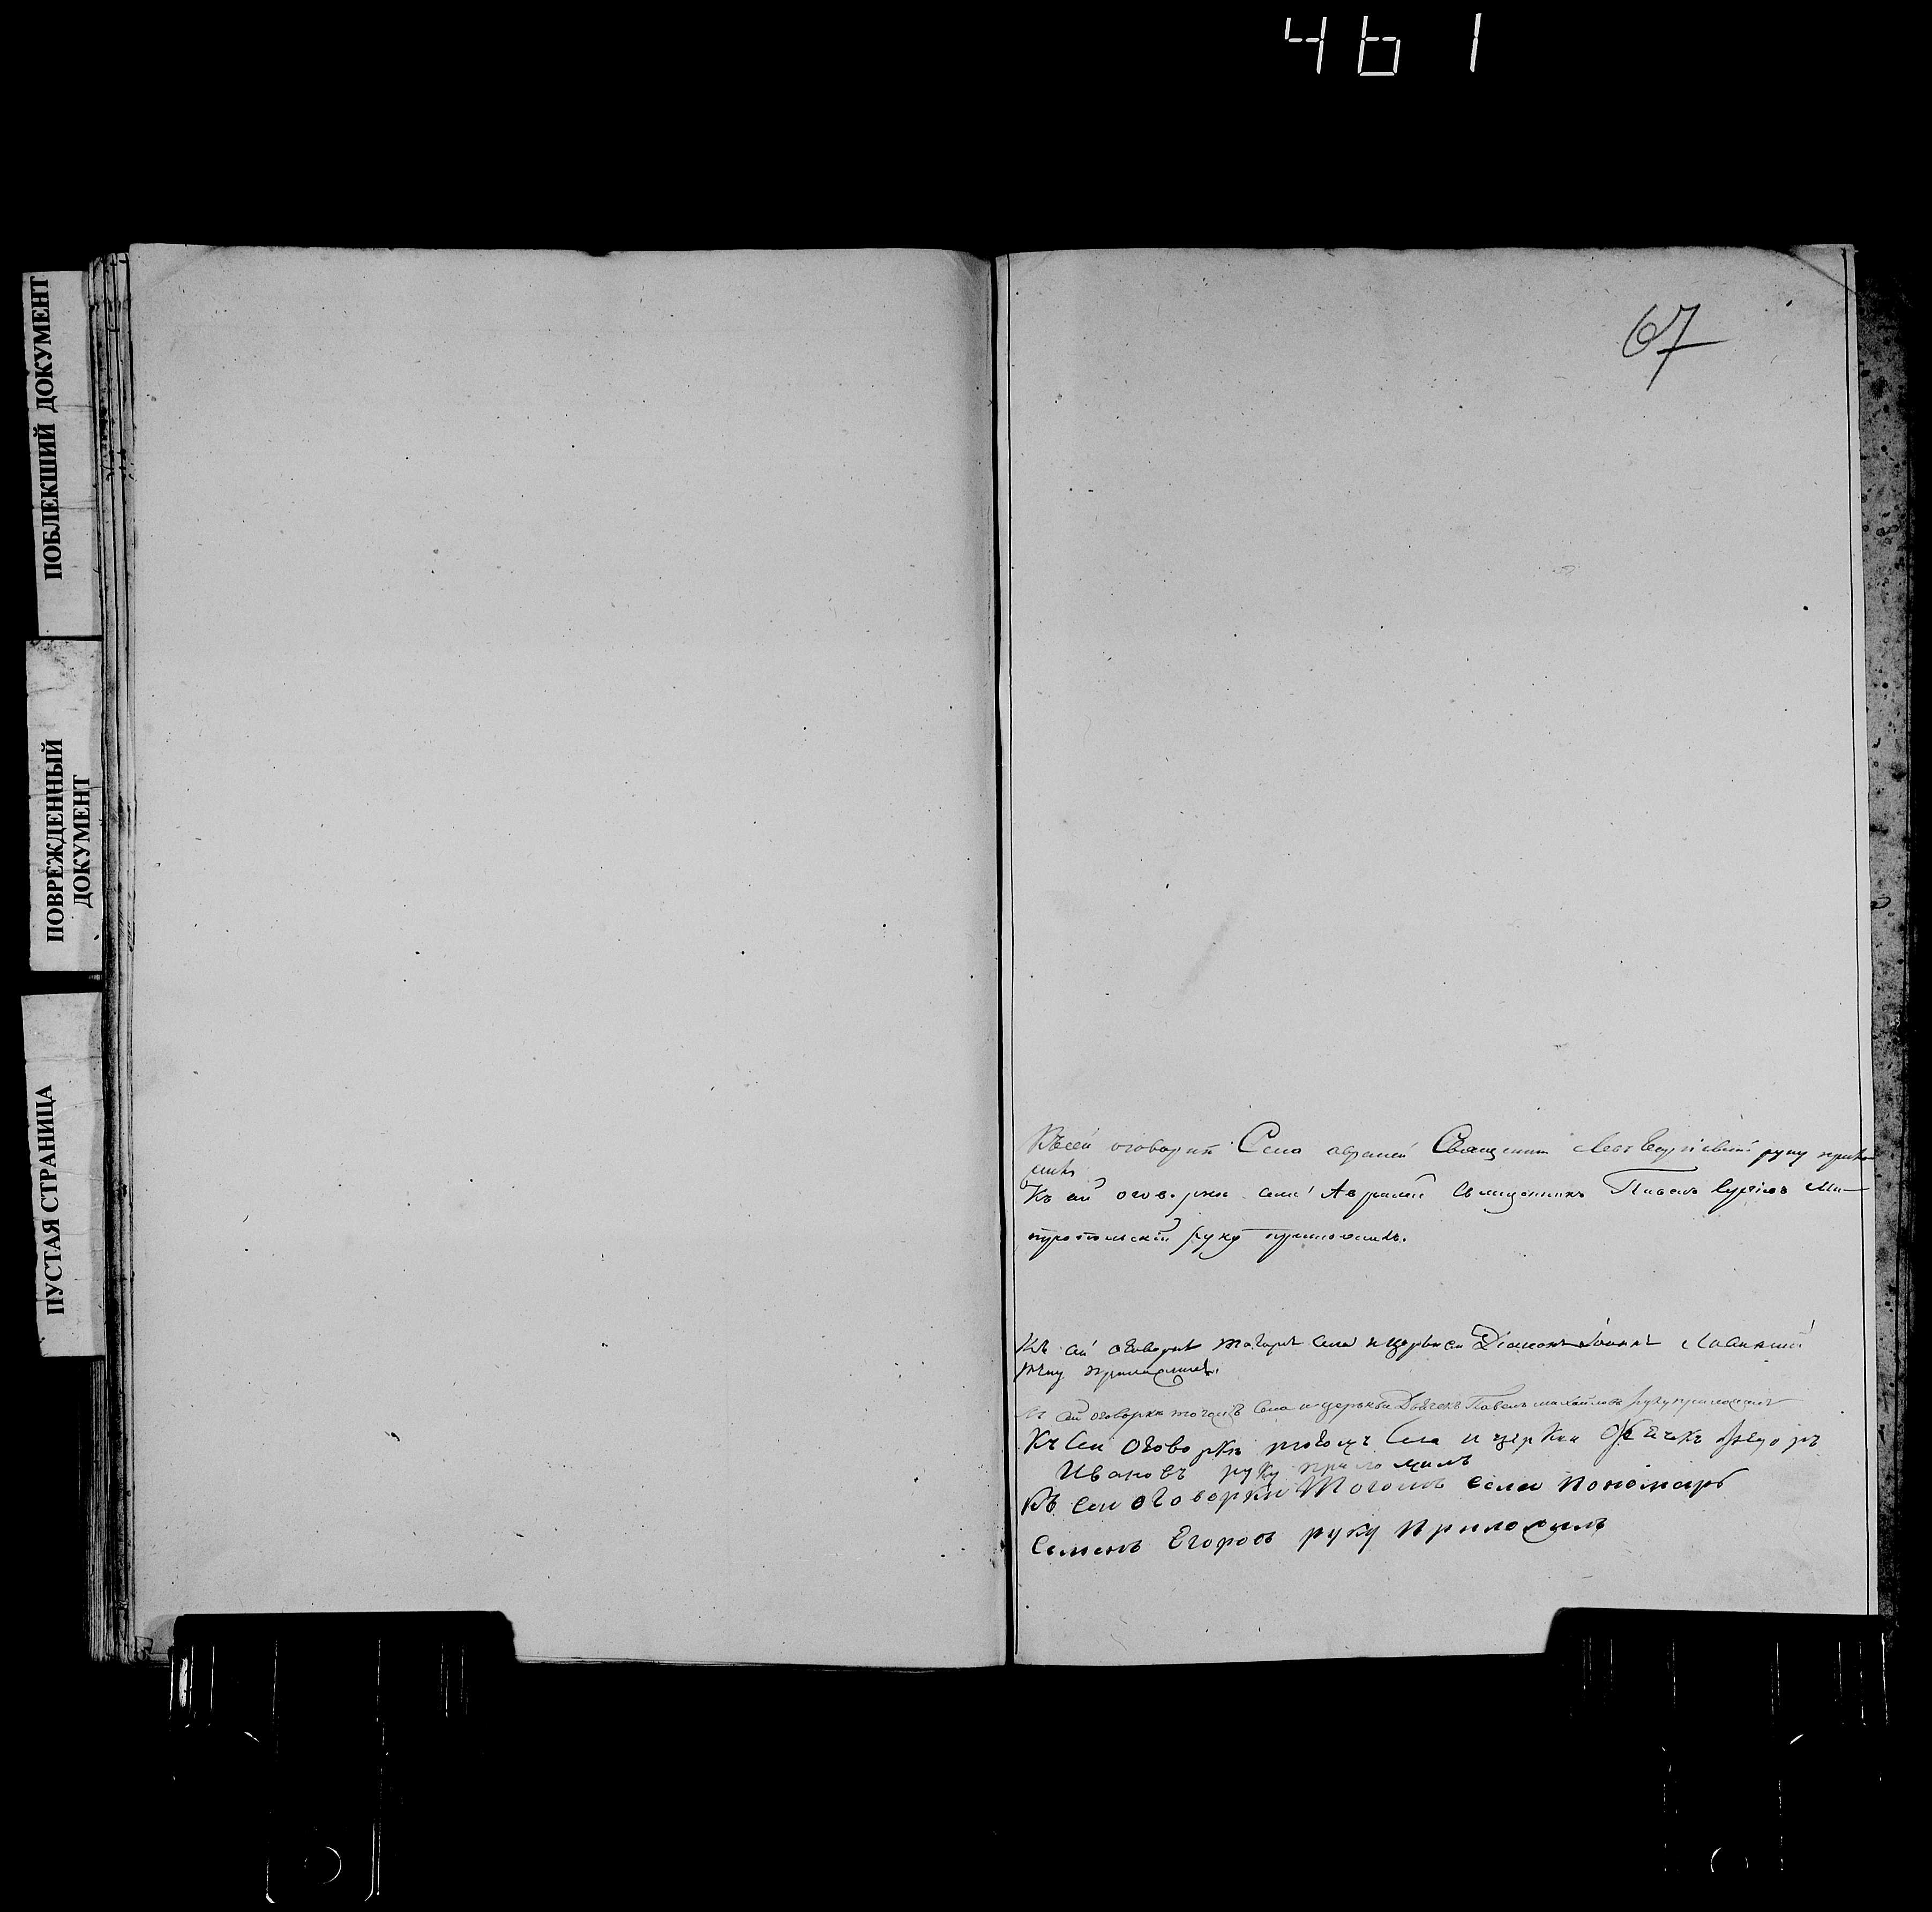 461
ПОБЛЕКШИЙ ДОКУМЕНТ
ПОВРЕЖДЕННЫЙ
ДОКУМЕНТ
ПУСТАЯ СТРАНИЦА
67
Къ сей оговорке Села Авралей Священник руку прило
жилъ
Къ сей оговорке села Авралей Священникъ Павелъ Ми
тропольскій руку приложилъ.
Къ сей оговорке тогоже села и церкви Діаконъ Іоаннъ
руку приложилъ.
Къ сей оговорке тогожъ села и церькви Дьячекъ Павелъ Михайловъ руку приложилъ
Къ сей оговорке тогожъ села и церкви дьячекъ Федоръ
Ивановъ руку приложилъ
Къ сеи оговорки тогожъ села пономарь
Семенъ Егоровъ руку приложилъ